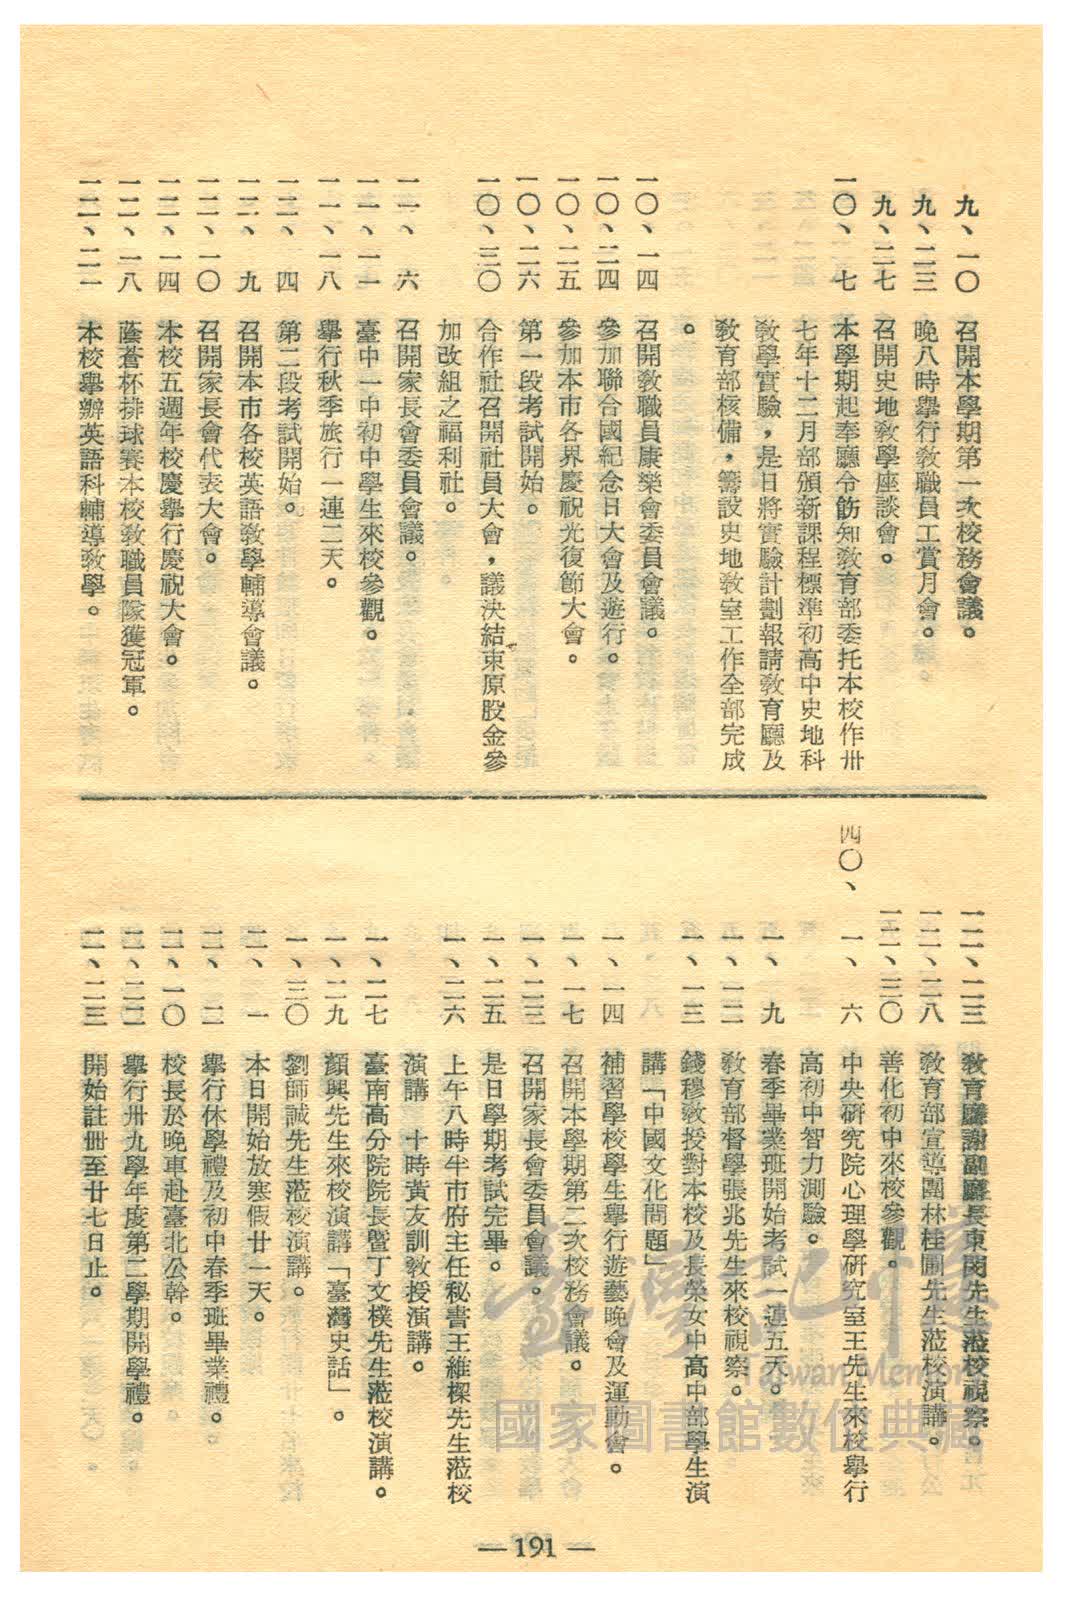 九、一〇　召開本學期第一次校務會議。
九、二三　晚八時舉行教職員工賞月會。
九、二七　召開史地教學座談會。
一〇、七　本學期起奉廳令飭知教育部委托本校作卅
七年十二月部頒新課程標準初高中史地科
教學實驗，是日將實驗計劃報請教育廳及
教育部核備，籌設史地教室工作全部完成
。
一〇、一四　召開教職員康樂會委員會議。
一〇、二四　參加聯合國紀念日大會及遊行。
一〇、二五　參加本市各界慶祝光復節大會。
一〇、二六　第一段考試開始。
一〇、三〇　合作社召開社員大會，議決結束原股金參
加改組之福利社。
一一、六　召開家長會委員會議。
一一、一一　臺中一中初中學生來校參觀。
一一、一八　舉行秋季旅行一連二天。
一二、四　第二段考試開始。
一二、九　召開本市各校英語教學輔導會議。
一二、一〇　召開家長會代表大會。
一二、一四　本校五週年校慶舉行慶祝大會。
一二、一八　蔭蒼杯排球賽本校教職員隊獲冠軍。
一二、二一　本校舉辦英語科輔導教學。
一二、二三　教育廳謝副廳長東閔先生蒞校視察。
一二、二八　教育部宣導團林桂圃先生蒞校演講。
一二、三〇　善化初中來校參觀。
四〇、一、六　中央研究院心理學研究室王先生來校舉行
高初中智力測驗。
一、九　春季畢業班開始考試一連五天。
一、一二　教育部督學張兆先生來校視察。
一、一三　錢穆教授對本校及長榮女中高中部學生演
講「中國文化問題」
一、一四　補習學校學生舉行遊藝晚會及運動會。
一、一七　召開本學期第二次校務會議。
一、二三　召開家長會委員會議。
一、二五　是日學期考試完畢。
一、二六　上午八時半市府主任秘書王維樑先生蒞校
演講　十時黃友訓教授演講。
一、二七　臺南高分院院長暨丁文樸先生蒞校演講。
一、二九　顏興先生來校演講「臺灣史話」。
一、三〇　劉師誠先生蒞校演講。
二、一　本日開始放寒假廿一天。
二、二　舉行休學禮及初中春季班畢業禮。
二、一〇　校長於晚車赴臺北公幹。
二、二二　舉行卅九學年度第二學期開學禮。
二、二三　開始註冊至廿七日止。
臺灣記憶
Taiwan Memory
國家圖書館數位典藏
— 191 —